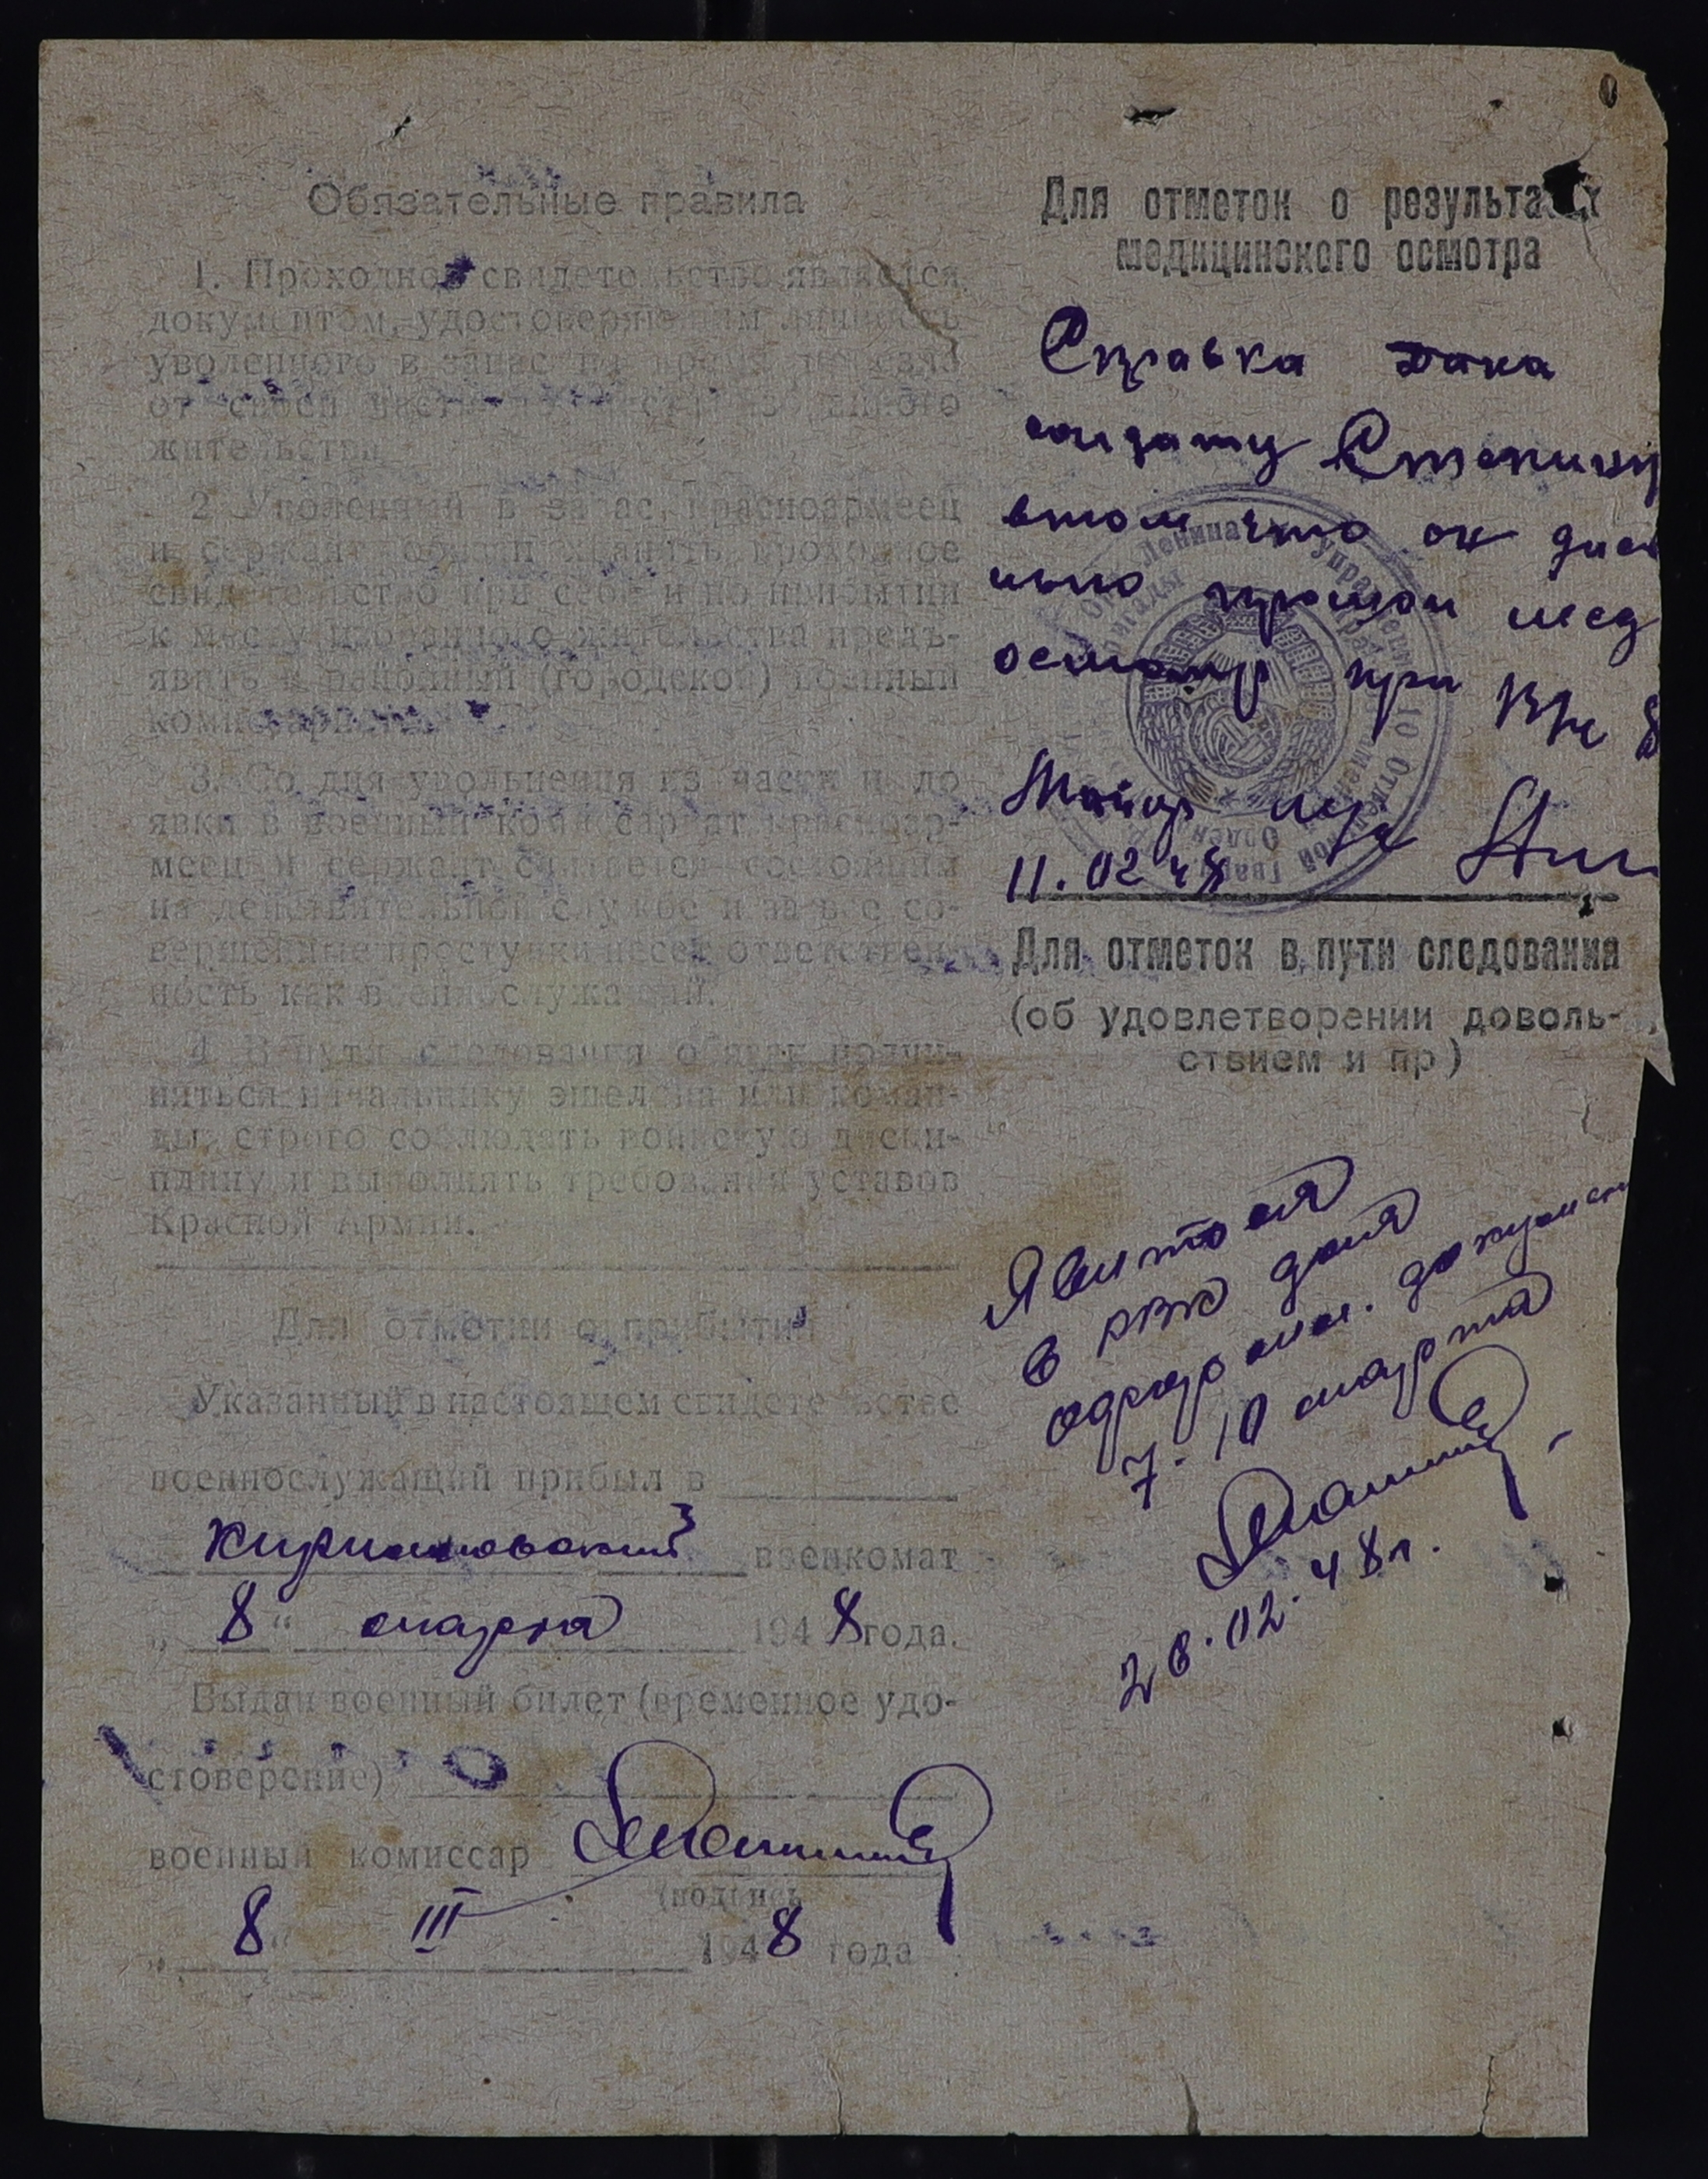 Обязательные правила
1. Проходное свидетельство является
документом, удостоверяющим личность
уволенного в запас на время
от своей части до
жительства.
2 Уволенный в запас красноармеец
и сержант обязан хранить проходное
свидетельство при себе и по прибытии
к месту избранного жительства предъ-
явить в районный (городской) военный
комиссариат.
3. Со дня увольнения из части и до
явки в военный комиссариат красноар-
меец и сержант считается состоящим
на действительной службе и за все со-
вершенные проступки несет ответствен-
ность как военнослужащий.
4. В пути следования обязан подчи-
няться начальнику эшелона или коман-
ды, строго соблюдать воинскую дисци-
плину и выполнять требования уставов
Красной Армии.
Для отметки о прибытии
Указанный в настоящем свидетельстве
военнослужащий прибыл в
военкомат
„ 8 “ марта 1948 года.
Выдан военный билет (временное удо-
стоверение)
военный комиссар
(подпись
„ 8 “ III 1948 года
Для отметок о результатах
медицинского осмотра
Справка дана
солдату
втом что он
прошол мед
осмотр при
Майор м/с
11.02 48
Для отметок в пути следования
(об удовлетворении доволь-
ствием и пр)
Явится
в РВК для
документ
7-10 марта
28.02.48 г.